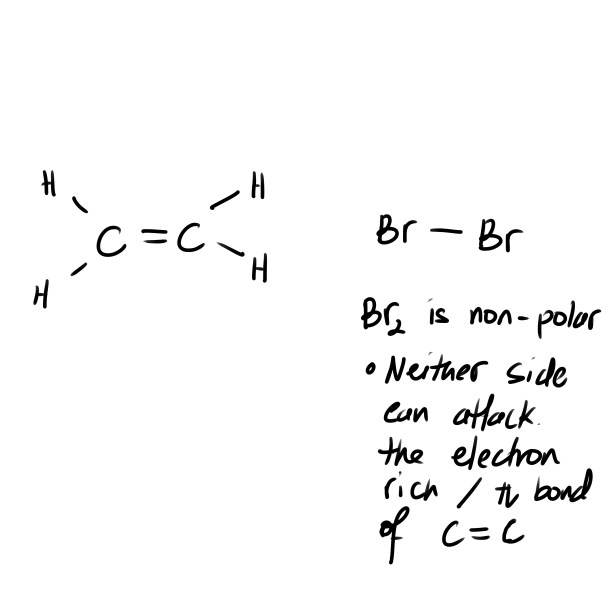 H H
C = C
H H
Br — Br
Br₂ is non-polar
• Neither side
can attack.
the electron
rich / π bond
of C = C